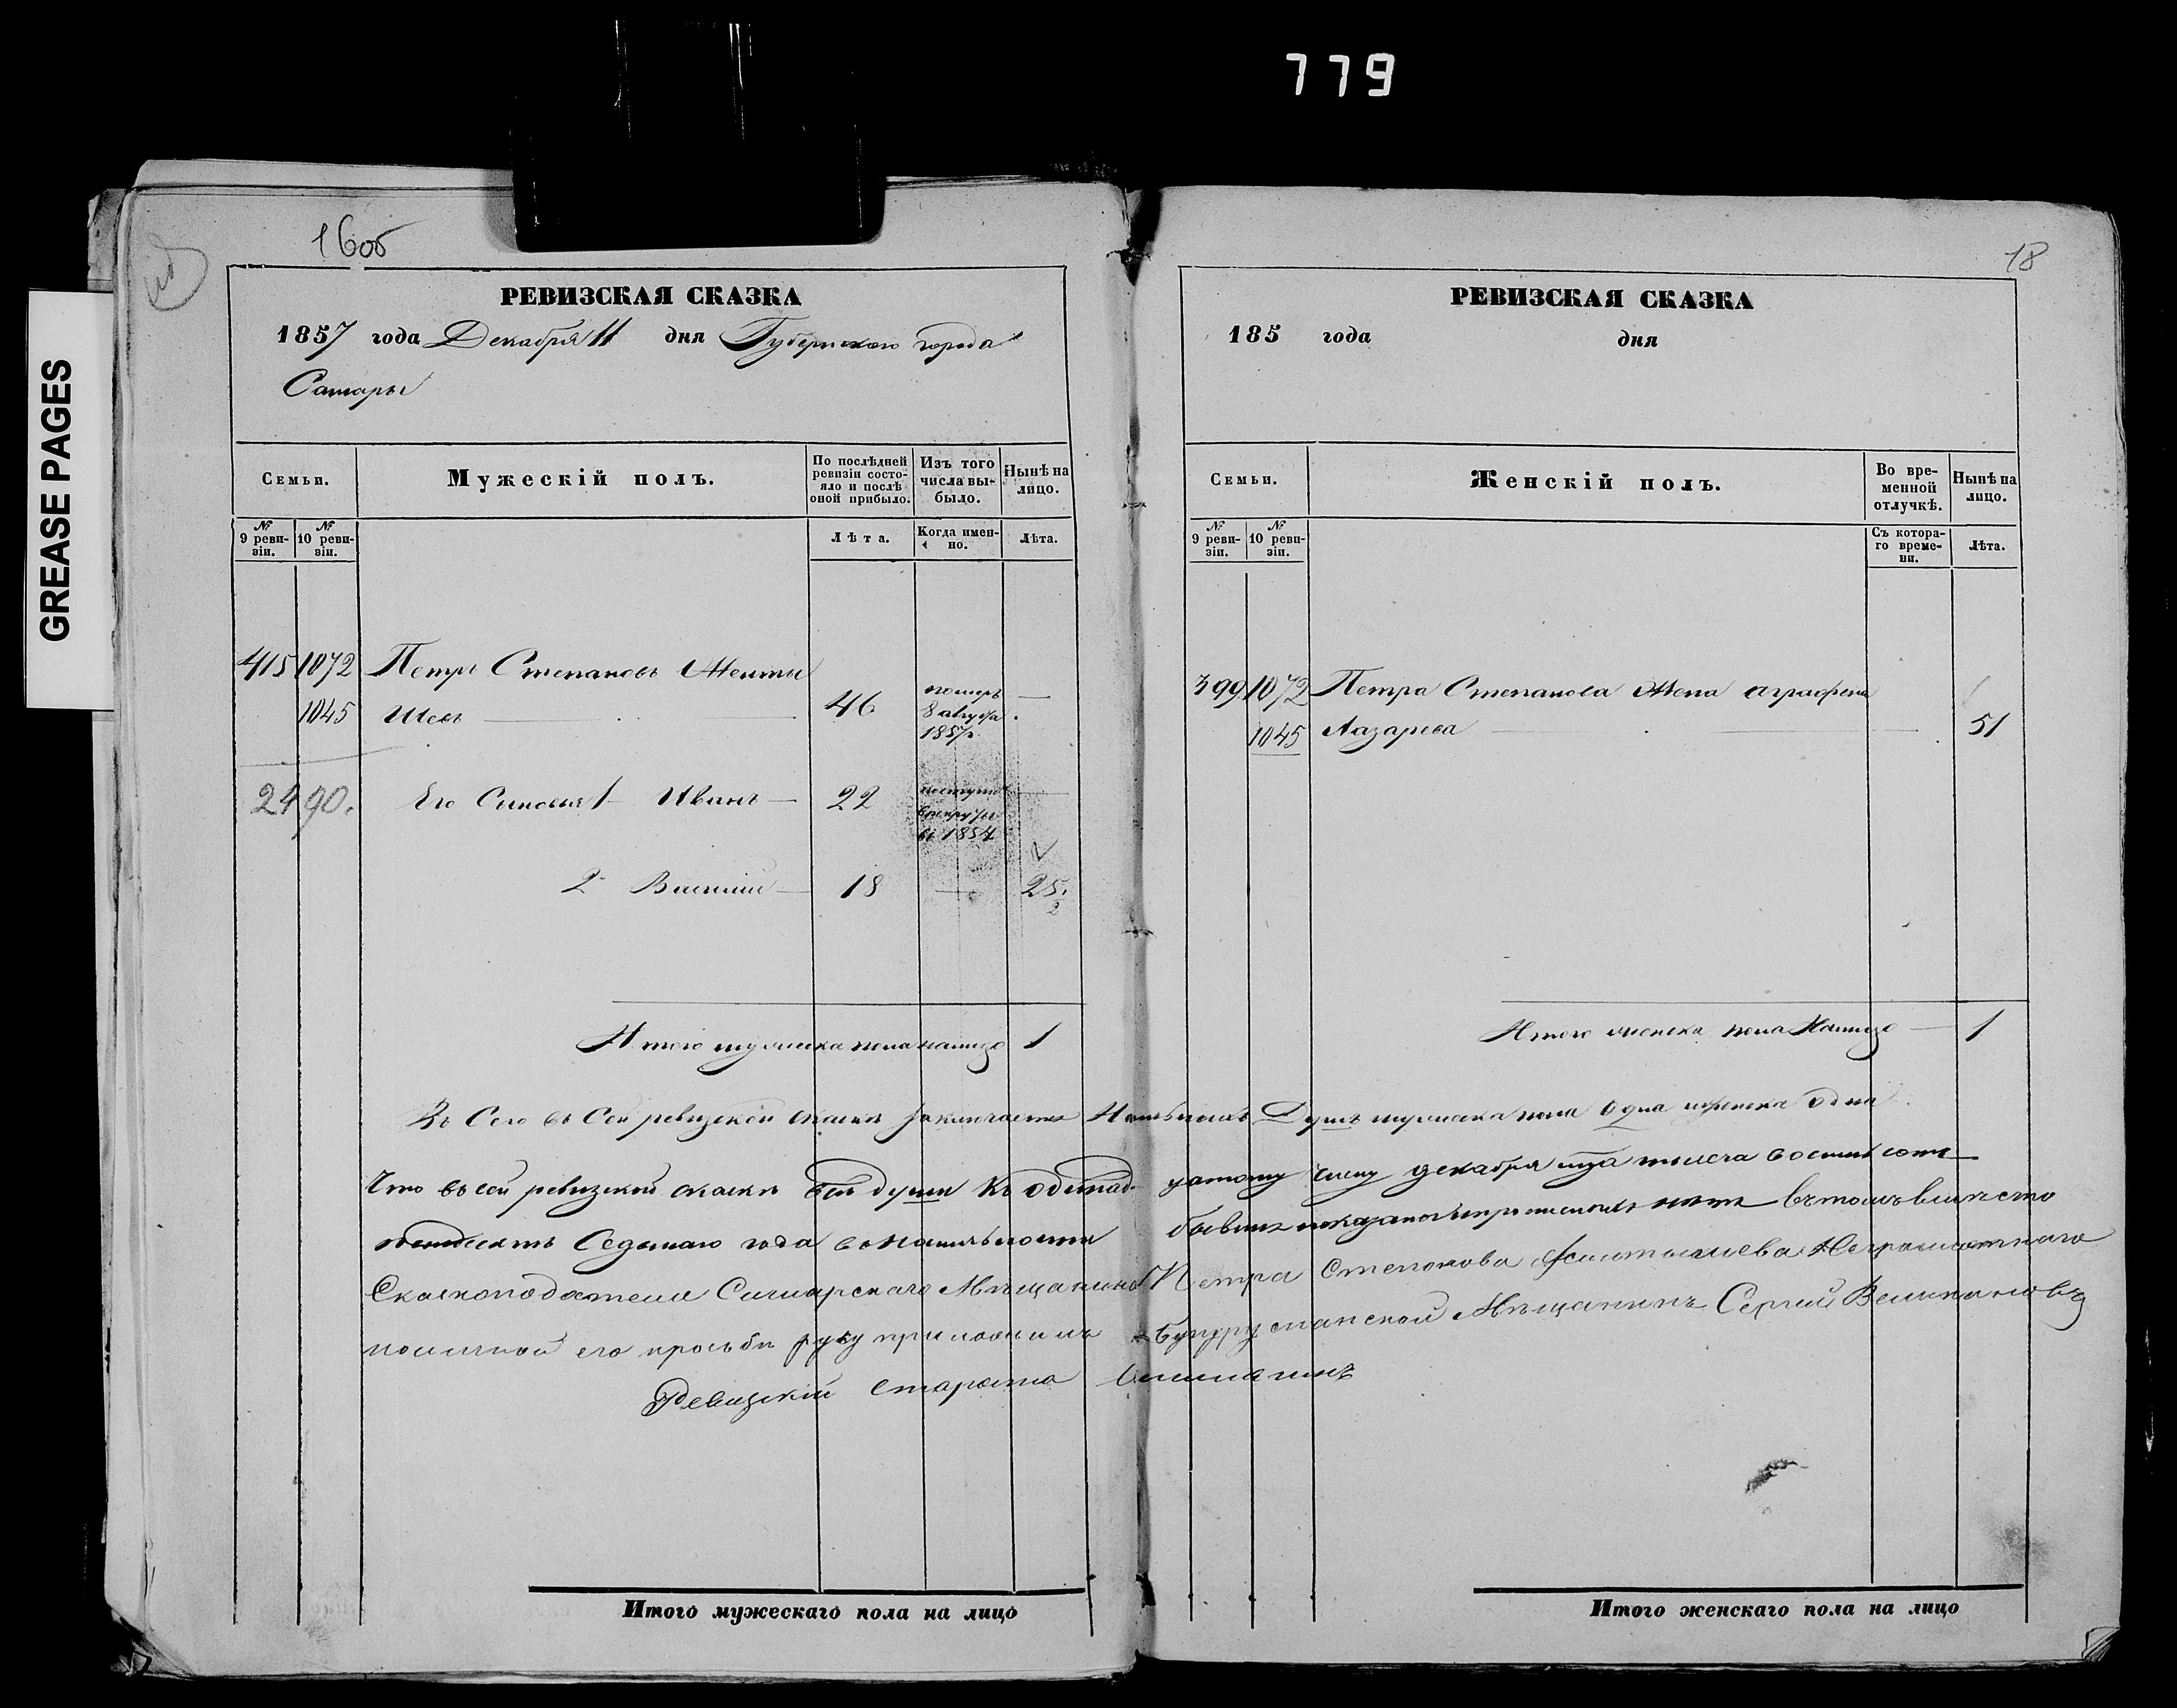 779
GREASE PAGES
16об
РЕВИЗСКАЯ СКАЗКА
1857 года Декабря 11 дня Губернского города
Самары
Семьи.
Мужескій полъ.
По послѣдней ревизіи состояло и послѣ оной прибыло.
Изъ того числа выбыло.
Нынѣ на лицо.
№ 9 ревизіи.
№ 10 ревизіи.
Лѣта.
Когда именно.
Лѣта.
415 1072 Петръ Степановъ
1045 46 померъ 8 августа 1857 —
2490. Его Сыновья 1 Иванъ — 22 поступ. в рекруты въ 1854 —
2 Василій — 18 — 25
2
Итого мужеска пола налицо 1
18
РЕВИЗСКАЯ СКАЗКА
185 года дня
Семьи.
Женскій полъ.
Во временной отлучкѣ.
Нынѣ на лицо.
№ 9 ревизіи.
№ 10 ревизіи.
Съ котораго времени.
Лѣта.
399 1072 Петра Степанова Жена аграфена
1045 Лазарева — — 51
Итого женска пола Налицо — 1
въ Сей ревизской сказкѣ заключается Душъ мужеска пола одна женска одна
Что въ сей ревизской сказкѣ всѣ души къ одиннадцатому числу декабря тысяча восемь сотъ
Седьмаго года бывшіе показаны и нетъ въ томъ вместо
Сказкоподателя Самарскаго Мѣщанина Петра Степанова Неграмотнаго
по личной его просьбѣ руку приложилъ Бугурусланской Мѣщанинъ Сергей Великановъ
Ревизскій староста
Итого мужескаго пола на лицо
Итого женскаго пола на лицо